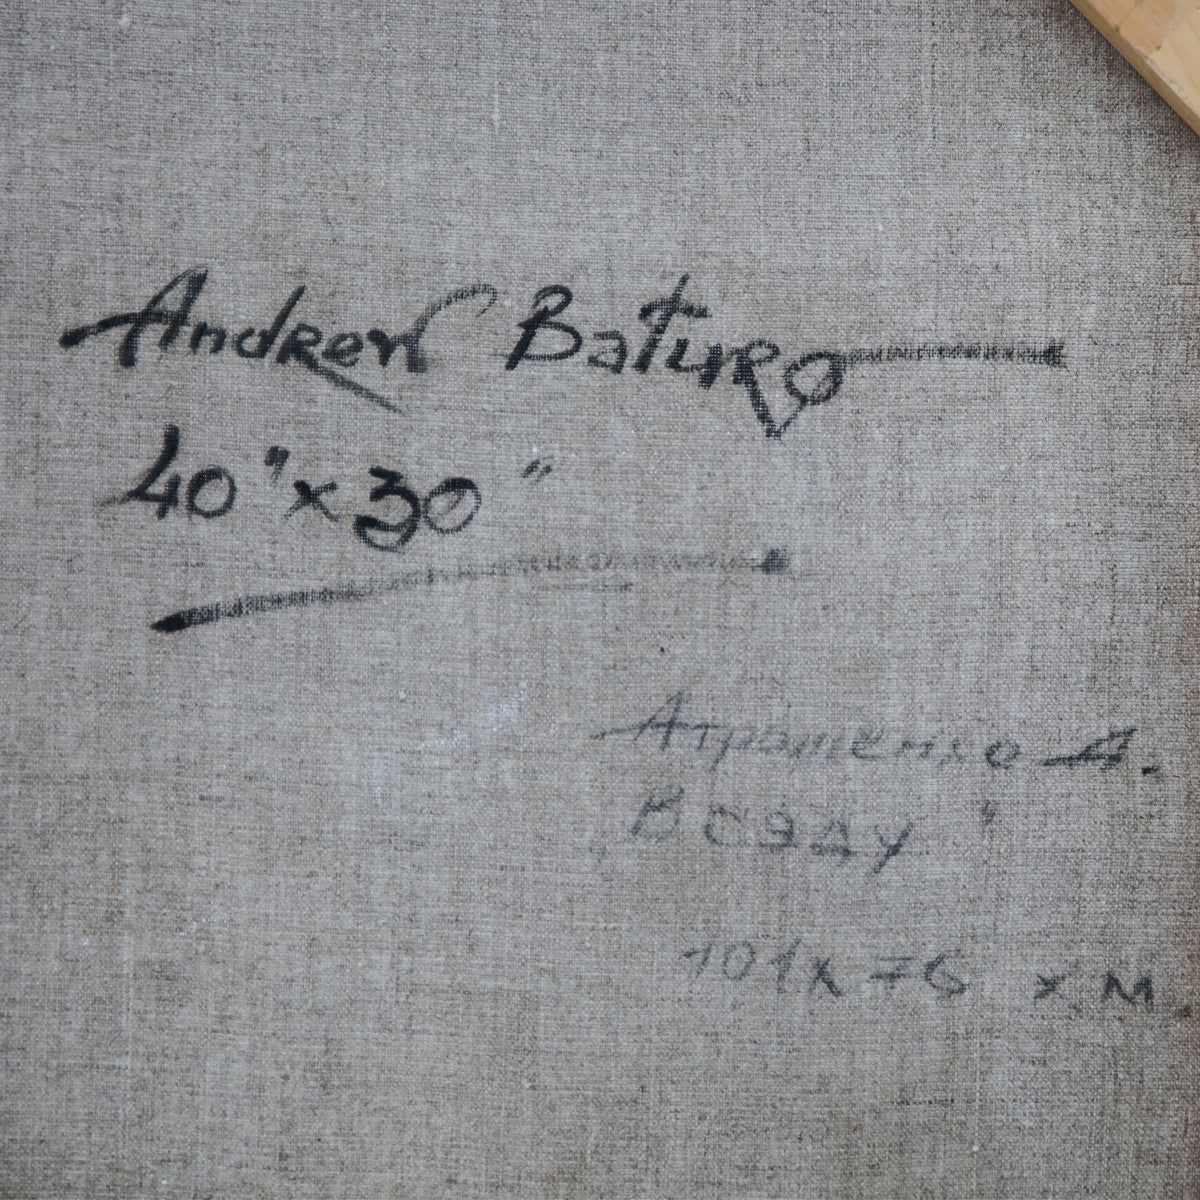 Andrew Baturo
40" x 30"
Атрашенко А.
"В саду"
101 x 76 х.м.